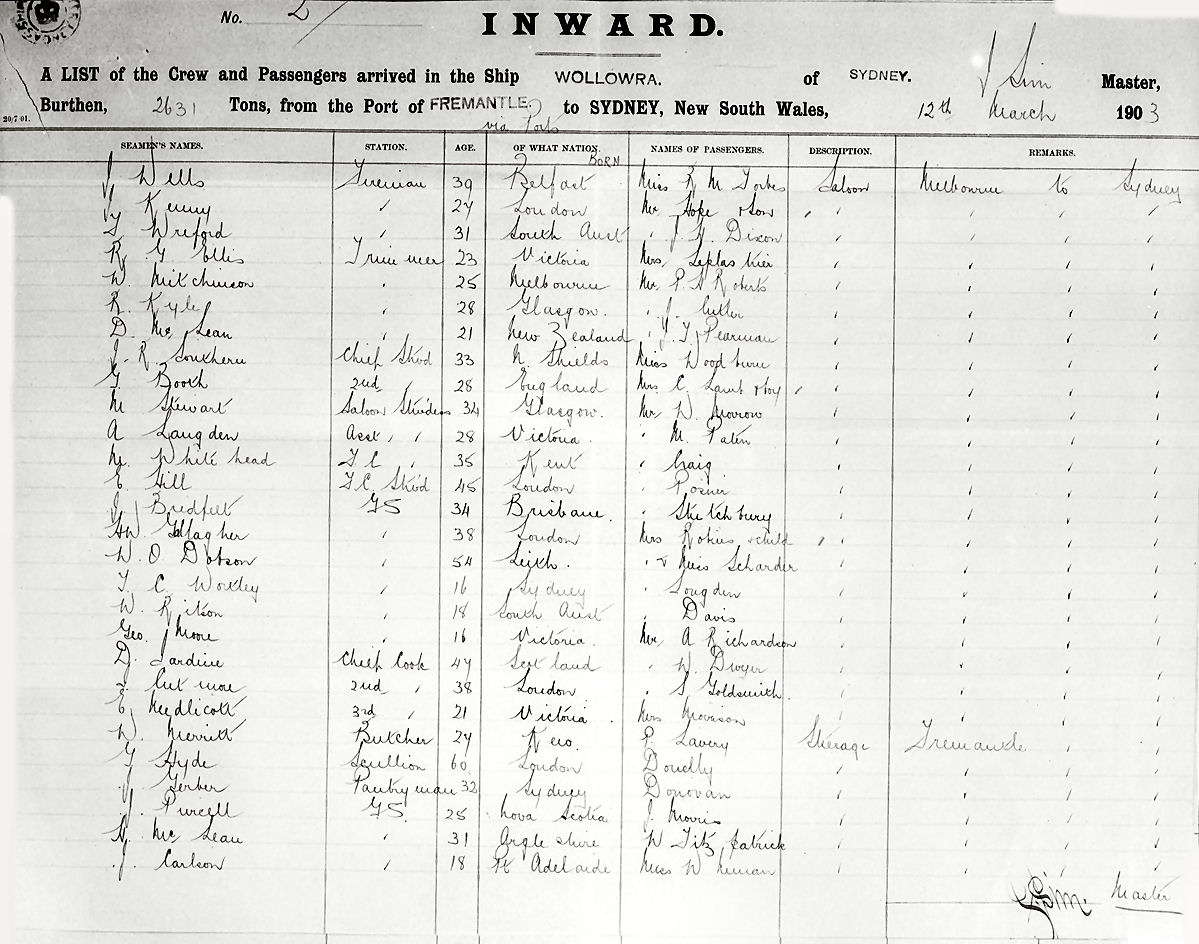 No. 2
INWARD.
A LIST of the Crew and Passengers arrived in the Ship WOLLOWRA. of SYDNEY. J Sim Master,
Burthen, 2631 Tons, from the Port of FREMANTLE. to SYDNEY, New South Wales, 12th March 1903
20/7/01. via Ports
SEAMEN'S NAMES. STATION. AGE. OF WHAT NATION. BORN NAMES OF PASSENGERS. DESCRIPTION. REMARKS.
J Wells Fireman 39 Belfast Miss R M Forbes Saloon Melbourne to Sydney
J Kenny " 27 London Mr Hope & Son " " " "
Wreford " 31 South Aust " J H Dixon " " " "
R G Ellis Trimmer 23 Victoria Mrs Leplastrier " " " "
W. Mitchinson " 25 Melbourne Mr. P. A Roberts " " " "
R. Kyle " 28 Glasgow. " J. Cutler " " " "
D. Mc Lean " 21 New Zealand " J. T. Pearman " " " "
J. R. Southern Chief Stwd 33 N. Shields Miss Woodburn " " " "
G Booth 2nd " 28 England Mrs C. Lamb & boy " " " "
M Stewart Saloon Stwdess 34 Glasgow. Mr W. Morrow " " " "
A Langden Asst " " 28 Victoria. " M. Paten " " " "
M. White head F C " 35 Kent " Craig " " " "
E. Hill F.C. Stwd 45 London " Posner " " " "
J. Bredfelt GS 34 Brisbane. " Stutchbury " " " "
HW Gallagher " 38 London Mrs & child " " " "
W. O Dobson " 54 Leith. " & Miss Scharder " " " "
T. C. Worley " 16 Sydney " Longden " " " "
W. Ritson " 18 South Aust " Davis " " " "
Geo. Moore " 16 Victoria. Mr. A Richardson " " " "
D. Jardine Chief Cook 47 Scotland " W. Dwyer " " " "
J. Cutmore 2nd " 38 London " S Goldsmith. " " " "
E. Medlicott 3rd " 21 Victoria. Mrs Morrison " " " "
W. Merritt Butcher 27 Kew. P Lavery Steerage Fremantle " "
G Hyde Scullion 60 London Donelly " " " "
J. Gerber Pantryman 32 Sydney Donovan " " " "
J. Purcell GS. 25 Nova Scotia J. Morris " " " "
A. Mc Lean " 31 Argyleshire W Fitzpatrick " " " "
J. Carlson " 18 Pt Adelaide Miss W " " " "
J Sim. Master